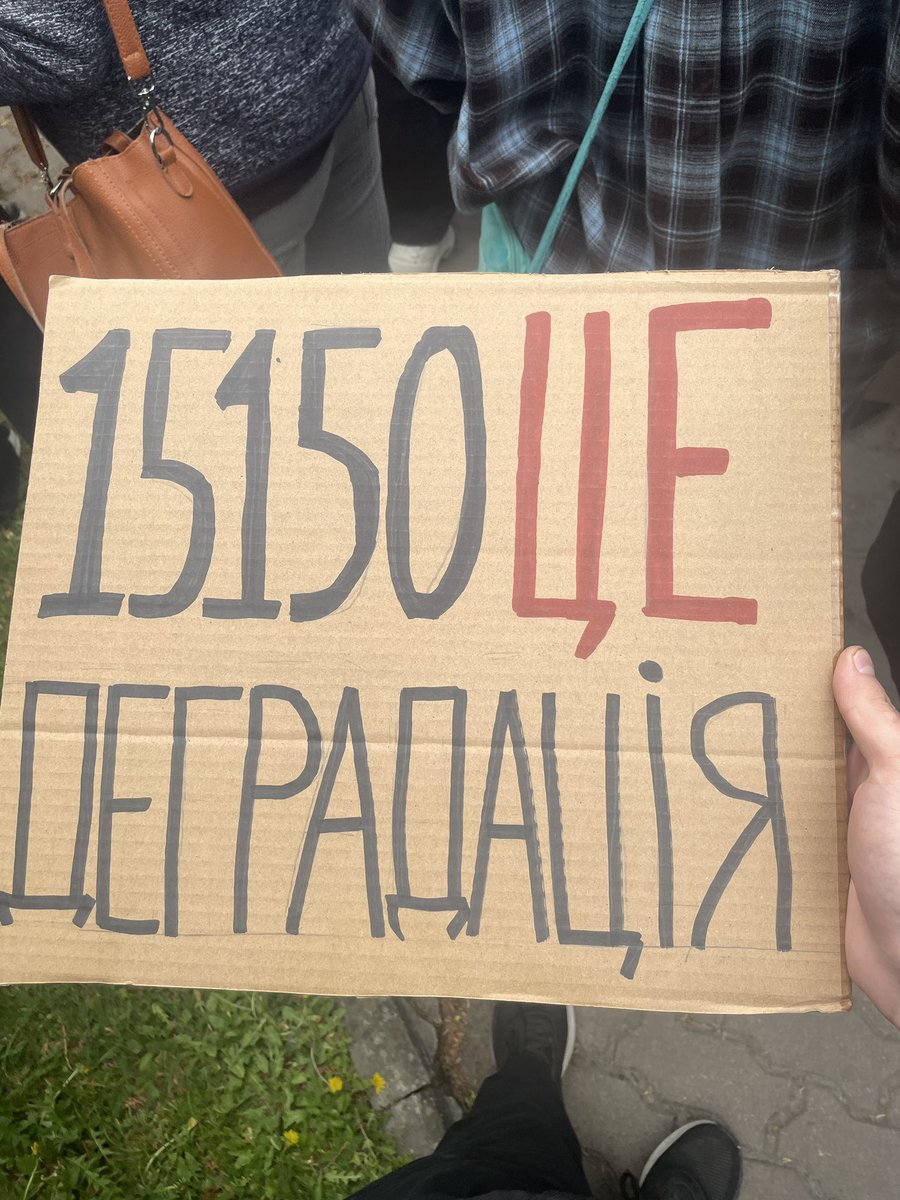 15150 ЦЕ
ДЕГРАДАЦІЯ